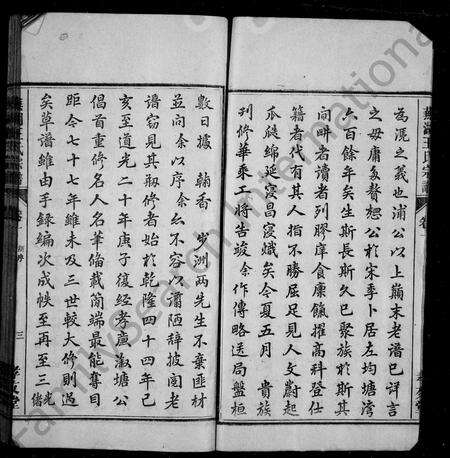 為溉之義也浦公以上顛末老譜已詳言
之毋庸多贅恕公於宋季卜居左均塘灣
六百餘年矣生斯長斯久已聚族於斯其
間畊者讀者列膠庠食廩餼擢高科登仕
籍者代有其人指不勝屈足見人文蔚起
瓜瓞綿延寖昌寖熾矣今夏五月 貴族
刊修華乘工將告竣余作傳略送局盤桓
數日據 翰香 少洲兩先生不棄匪材
並向余以序余玄不容以谫陋辭披閱老
譜窃見其刱修者始於乾隆四十四年己
亥至道光二十年庚子復經孝廉淑塘公
倡首重修名人名華備載簡端最能奪目
距今七十七年雖未及三世較大修則過
矣草譜雖由手錄編次成帙至再至三
三
FamilySearch International